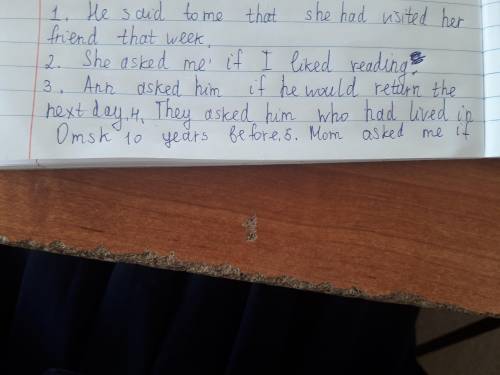 1. He said to me that she had visited her
friend that week.
2. She asked me if I liked reading.
3. Ann asked him if he would return the
next day. 4. They asked him who had lived in
Omsk 10 years before. 5. Mom asked me if